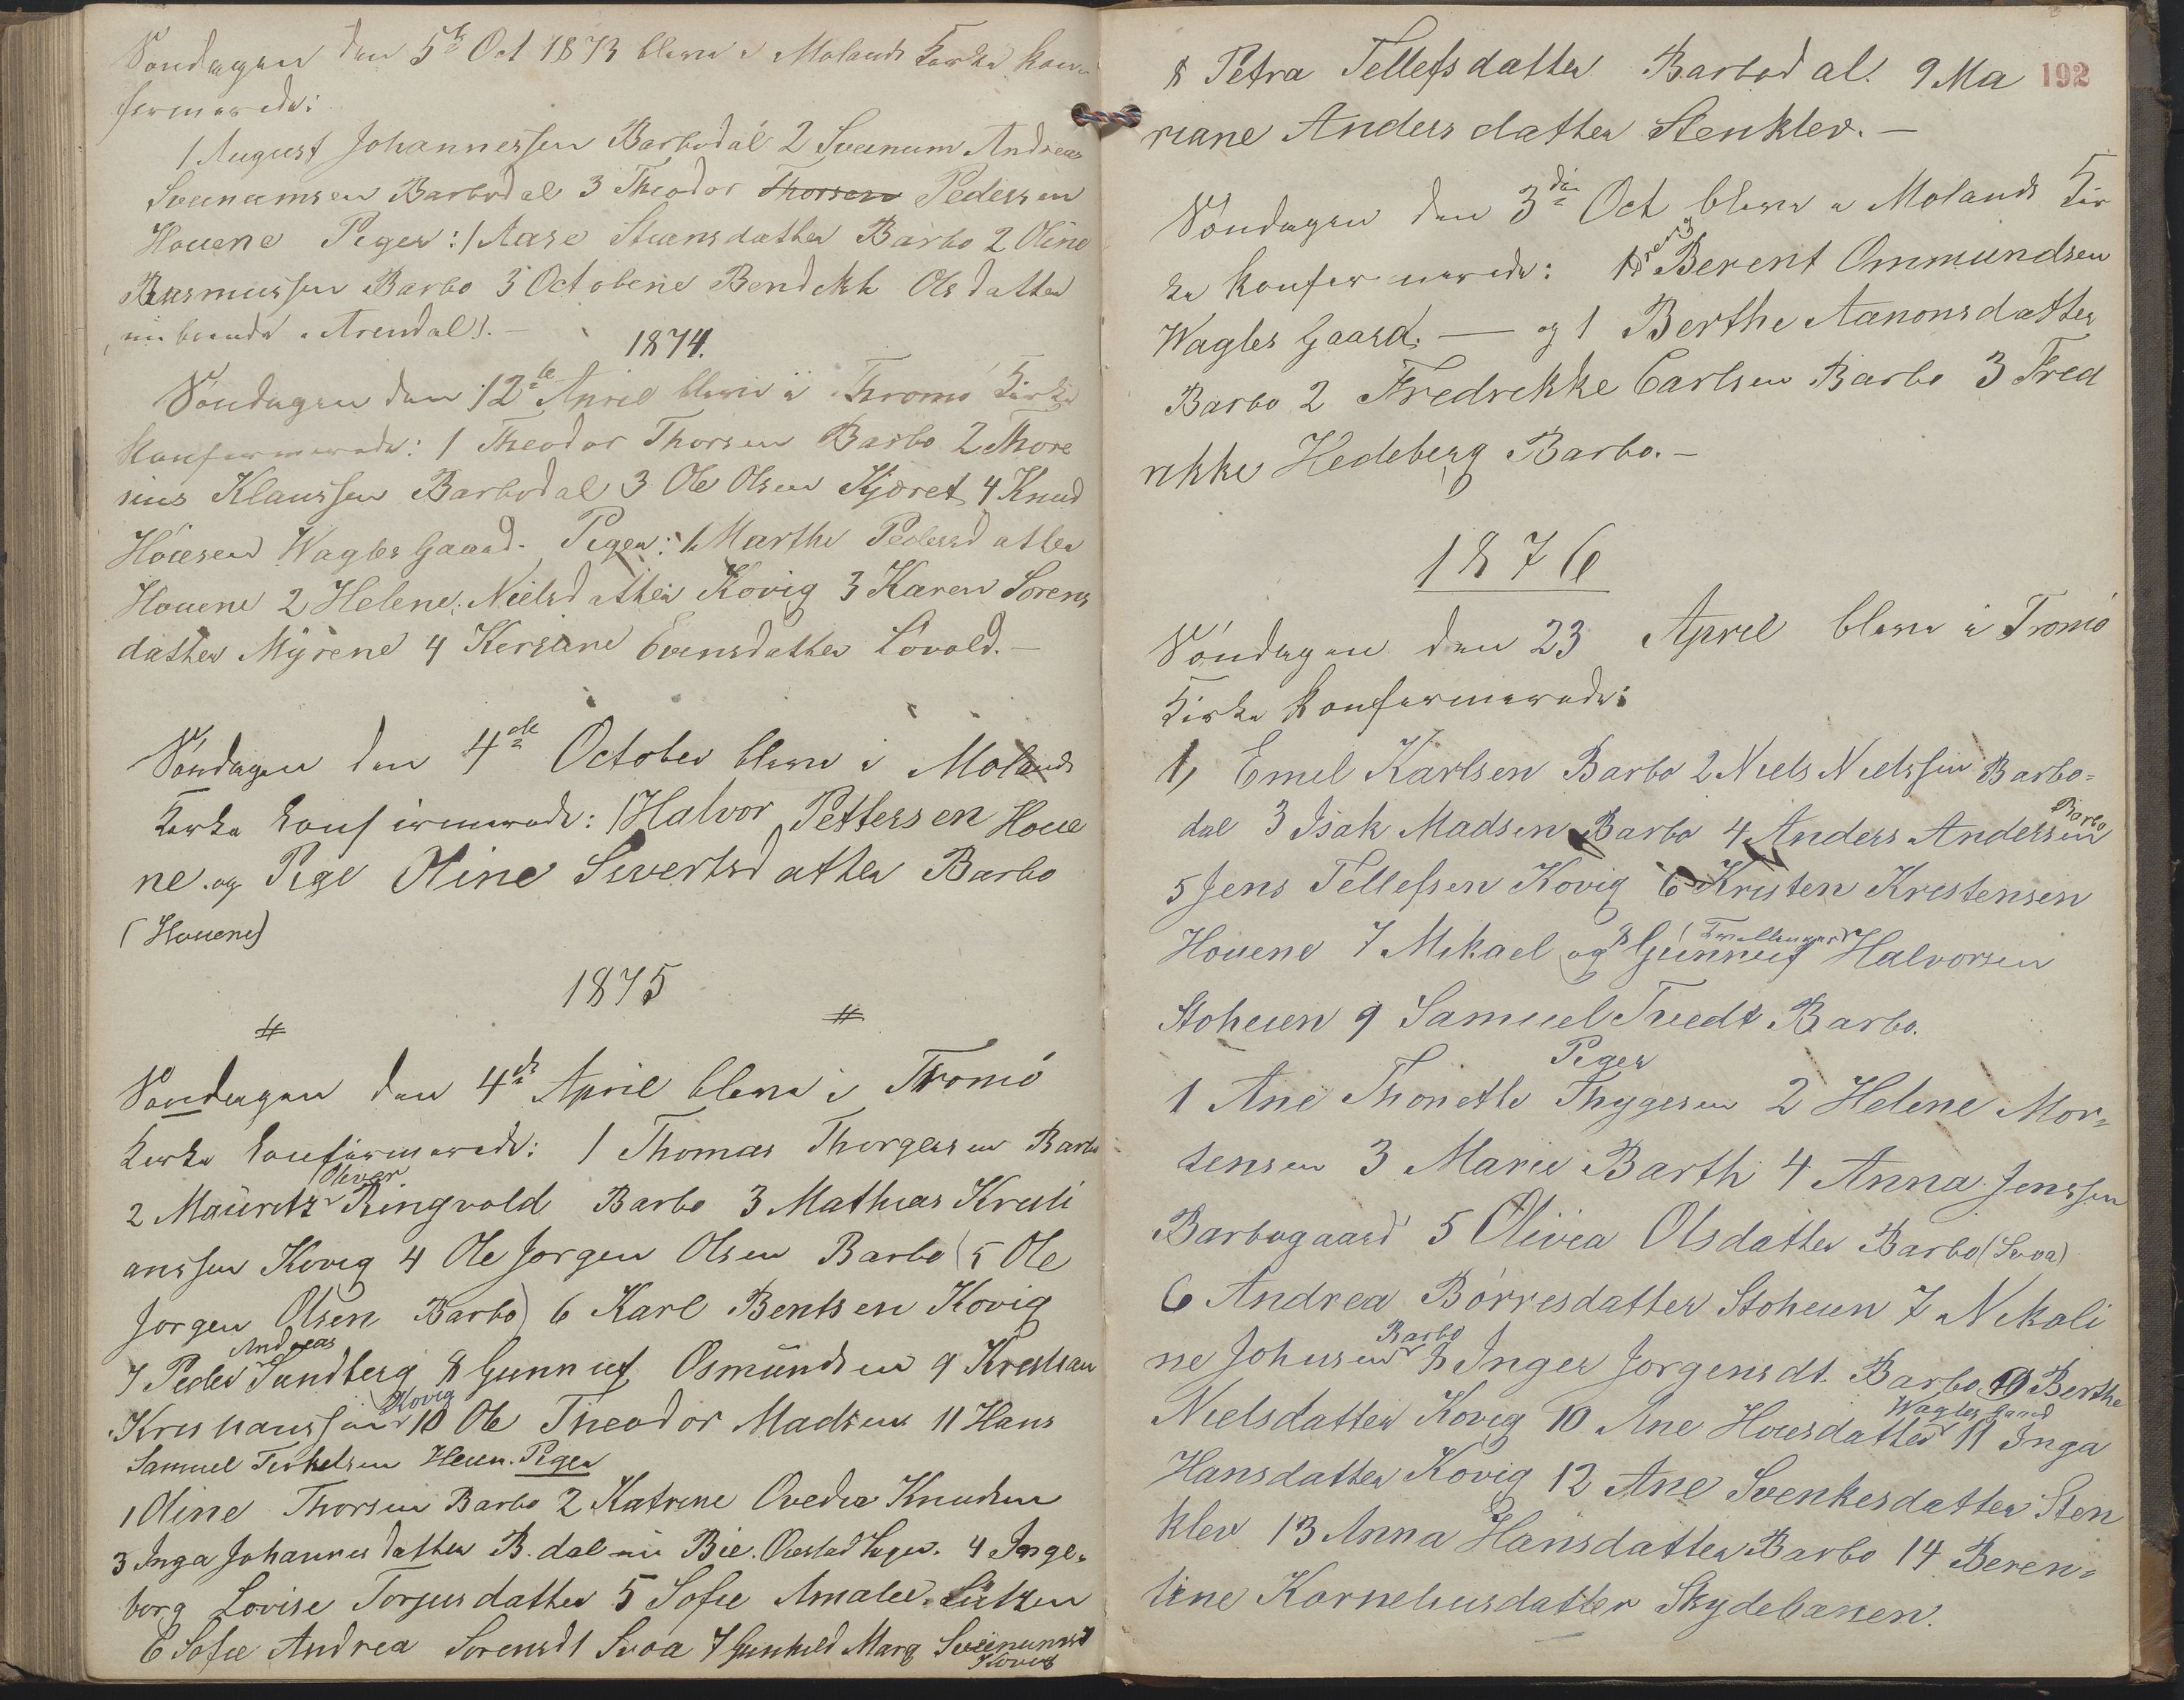 Søndagen den 5te Oct 1873 bleve i Molands Kirke kon-
firmerede:
1 August Johannessen Barbodal 2 Sveinum Andreas
Sveinumsen Barbodal 3 Theodor Thorsen Pedersen
Houene Piger: 1 Aase Steansdatter Barbo 2 Oline
Rasmussen Barbo 3 Octobene Bendikte Olsdatter
Arendal).—
1874.
Søndagen den 12te April bleve i Tromø Kirke
konfirmerede: 1 Theodor Thorsen Barbo 2 Thore
nius Klaussen Barbodal 3 Ole Olsen Kjøret 4 Knud
Höiesen Wagles Gaard. Piger: 1 Marthe Pedersdatter
Houene 2 Helene Nielsdatter Kovig 3 Karen Sorens
datter Myrene 4 Kersane Evensdatter Lovold.—
Søndagen den 4de October bleve i Molands
Kirke konfirmerede: 1 Halvor Pettersen Houe
ne og Pige Oline Sivertsdatter Barbo
(Houene)
1875
Søndagen den 4de April bleve i Tromö
Kirke konfirmerede: 1 Thomas Thorgersen Barbo
Oliver
2 Mauritz Ringvold Barbo 3 Mathias Kristi
anssen Kovig 4 Ole Jorgen Olsen Barbo (5 Ole
Jorgen Olsen Barbo) 6 Karl Bentsen Kovig
Andreas
7 Peder Sundberg 8 Gunnuf Osmundsen 9 Kristian
Kovig
Kristianssen 10 Ole Theodor Madsen 11 Hans
Samuel Terkelsen Heien. Piger
1 Oline Thorsen Barbo 2 Katrine Ovedia Knudsen
3 Inga Johannesdatter B.dal Bie. 4 Inge-
borg Lovise Torjusdatter 5 Sofie Amalie Lützen
6 Sofie Andrea Sorensdt Svoa 7 Gunhild Marg Sveinumsd
Kovig
8 Petra Tellefsdatter Barbodal. 9 Ma 192
riane Andersdatter Stenklev.—
Søndagen den 3die Oct bleve i Molands Kir
ke konfirmerede: 1 Dreng Berent Ommundsen
Wagles Gaard.— og 1 Berthe Aanonsdatter
Barbo 2 Fredrikke Carlsen Barbo 3 Fred
rikke Hedeberg Barbo.—
1876
Søndagen den 23 April bleve i Tromö
Kirke konfirmerede:
1, Emil Karlsen Barbo 2 Niels Nielssen Barbo-
dal 3 Isak Madsen Barbo 4 Anders Andersen Barbo
5 Jens Tellefsen Kovig 6 Kristen Kristensen
Houene 7 Mikael og 8 Gunnuf (Tvillinger) Halvorsen
Stoheien 9 Samuel Tvedt Barbo.
Piger
1 Ane Thonette Thygesen 2 Helene Mor-
tensen 3 Marie Barth 4 Anna Jenssen
Barbogaard 5 Olivia Olsdatter Barbo (Svoa)
6 Andrea Börresdatter Stoheien 7 Nikoli
Barbo
ne Johnsen 8 Inger Jorgensdt. Barbo 9 Berthe
Wagles Gaard
Nielsdatter Kovig 10 Ane Hoiesdatter 11 Inga
Hansdatter Kovig 12 Ane Svenkesdatter Sten
klev 13 Anna Hansdatter Barbo 14 Beren-
tine Korneliusdatter Skydebanen.